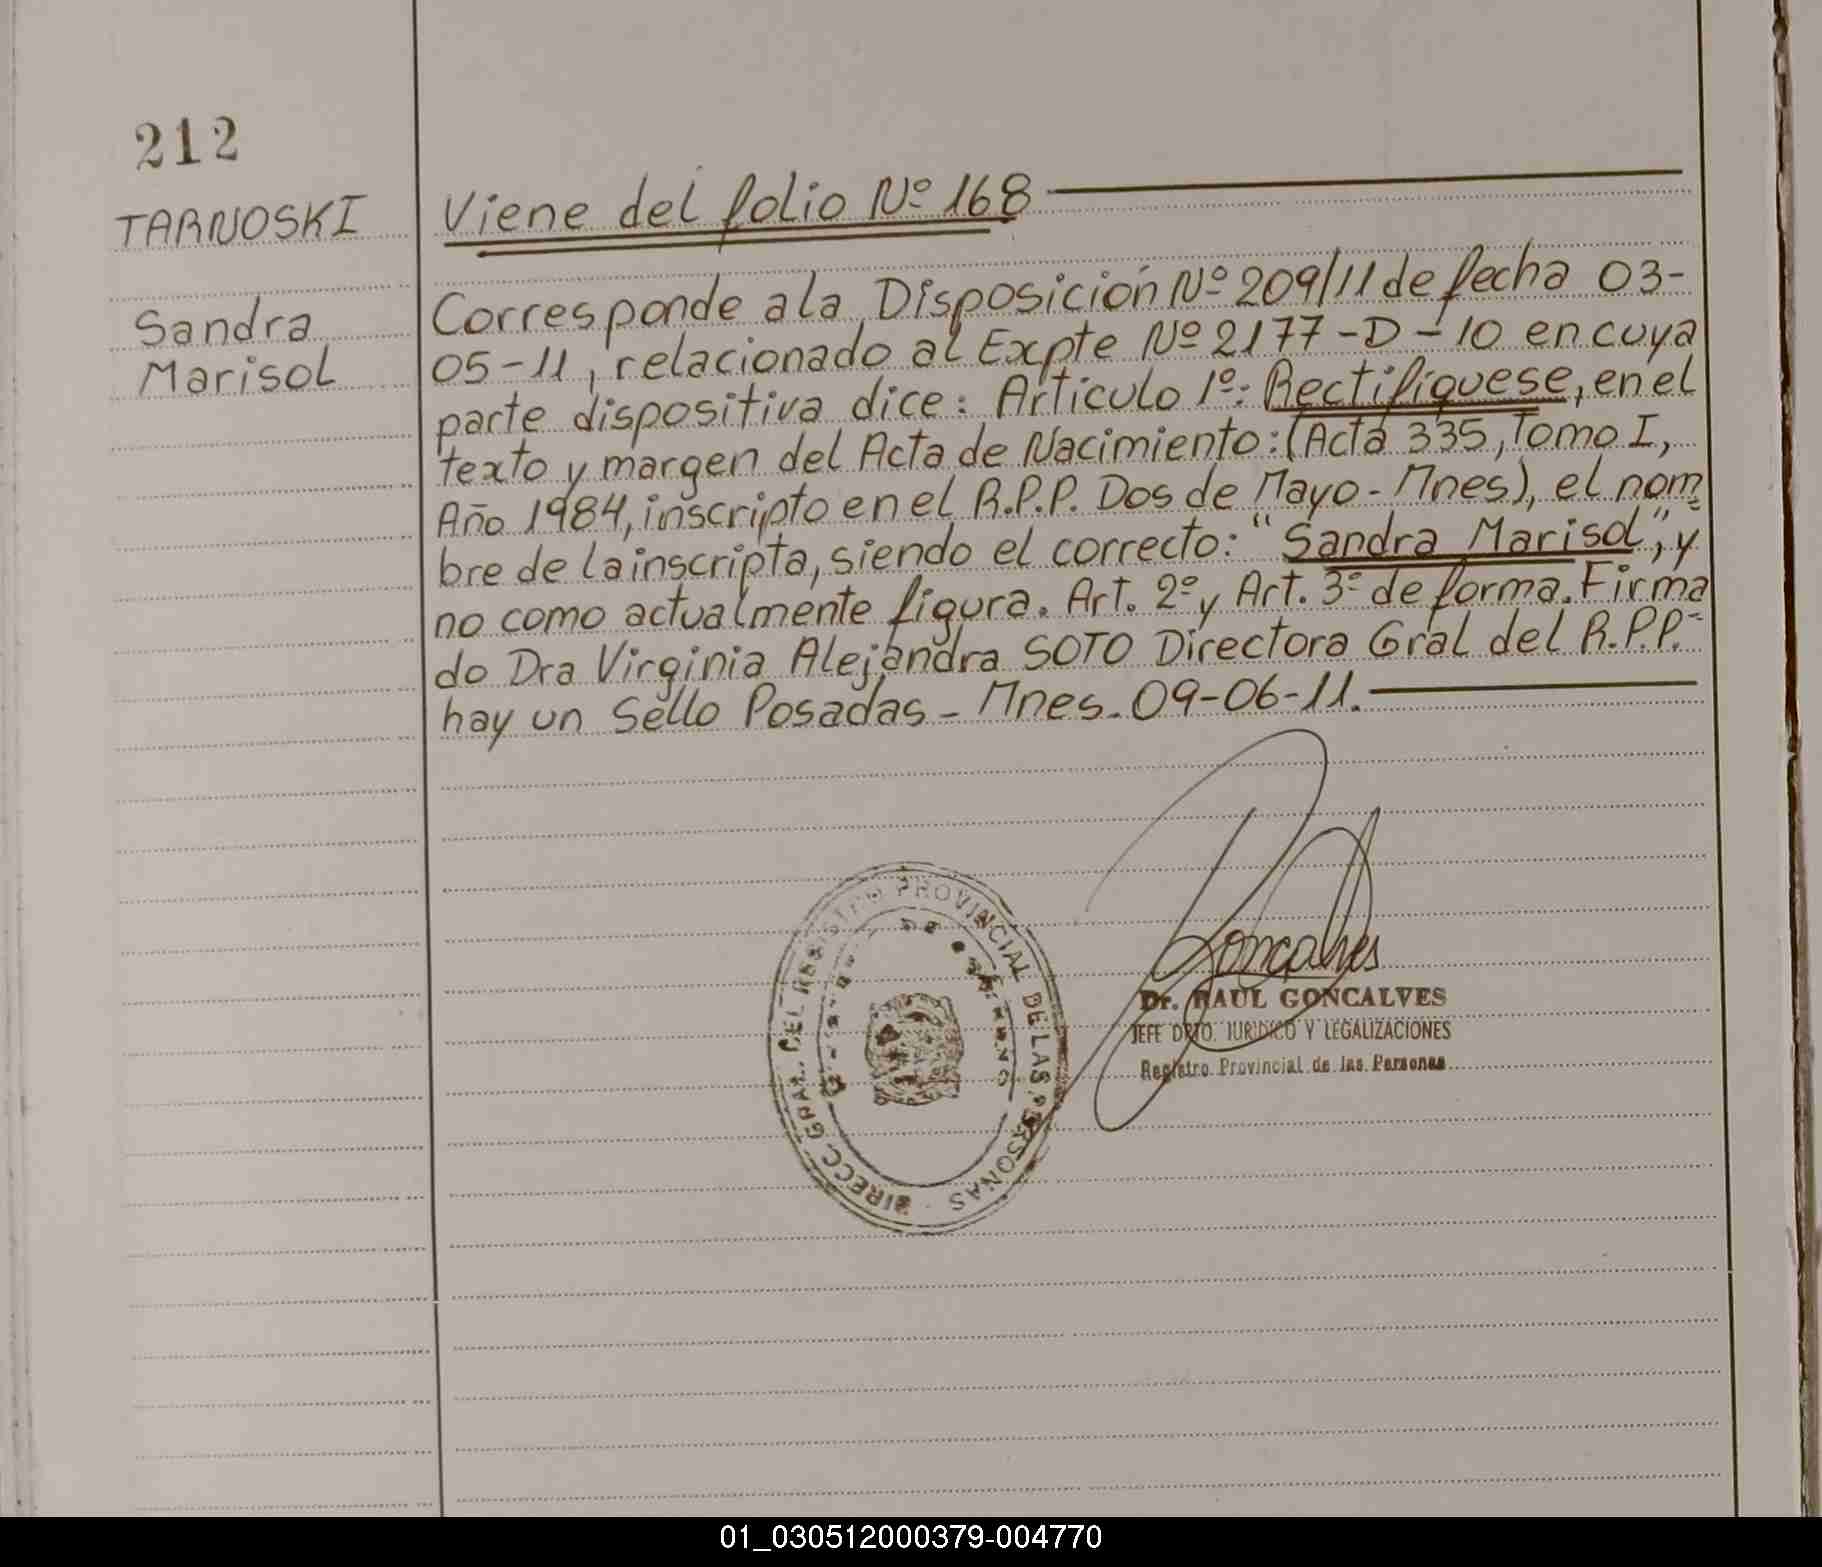 212
TARNOSKI
Sandra
Marisol
Viene del folio Nº 168
Corresponde a la Disposición Nº 209/11 de fecha 03-
05-11, relacionado al Expte Nº 2177-D-10 en cuya
parte dispositiva dice: Artículo 1º: Rectifíquese, en el
texto y margen del Acta de Nacimiento: (Acta 335, Tomo I,
Año 1984, inscripto en el R.P.P. Dos de Mayo - Mnes), el nom=
bre de la inscripta, siendo el correcto: "Sandra Marisol", y
no como actualmente figura. Art. 2º y Art. 3º de forma. Firma=
do Dra Virginia Alejandra SOTO Directora Gral del R.P.P.
hay un Sello Posadas - Mnes. 09-06-11.
DIRECC. GRAL. DEL REGISTRO PROVINCIAL DE LAS PERSONAS
Goncalves
Dr. RAUL GONCALVES
JEFE DPTO. JURIDICO Y LEGALIZACIONES
Registro Provincial de las Personas
01_030512000379-004770